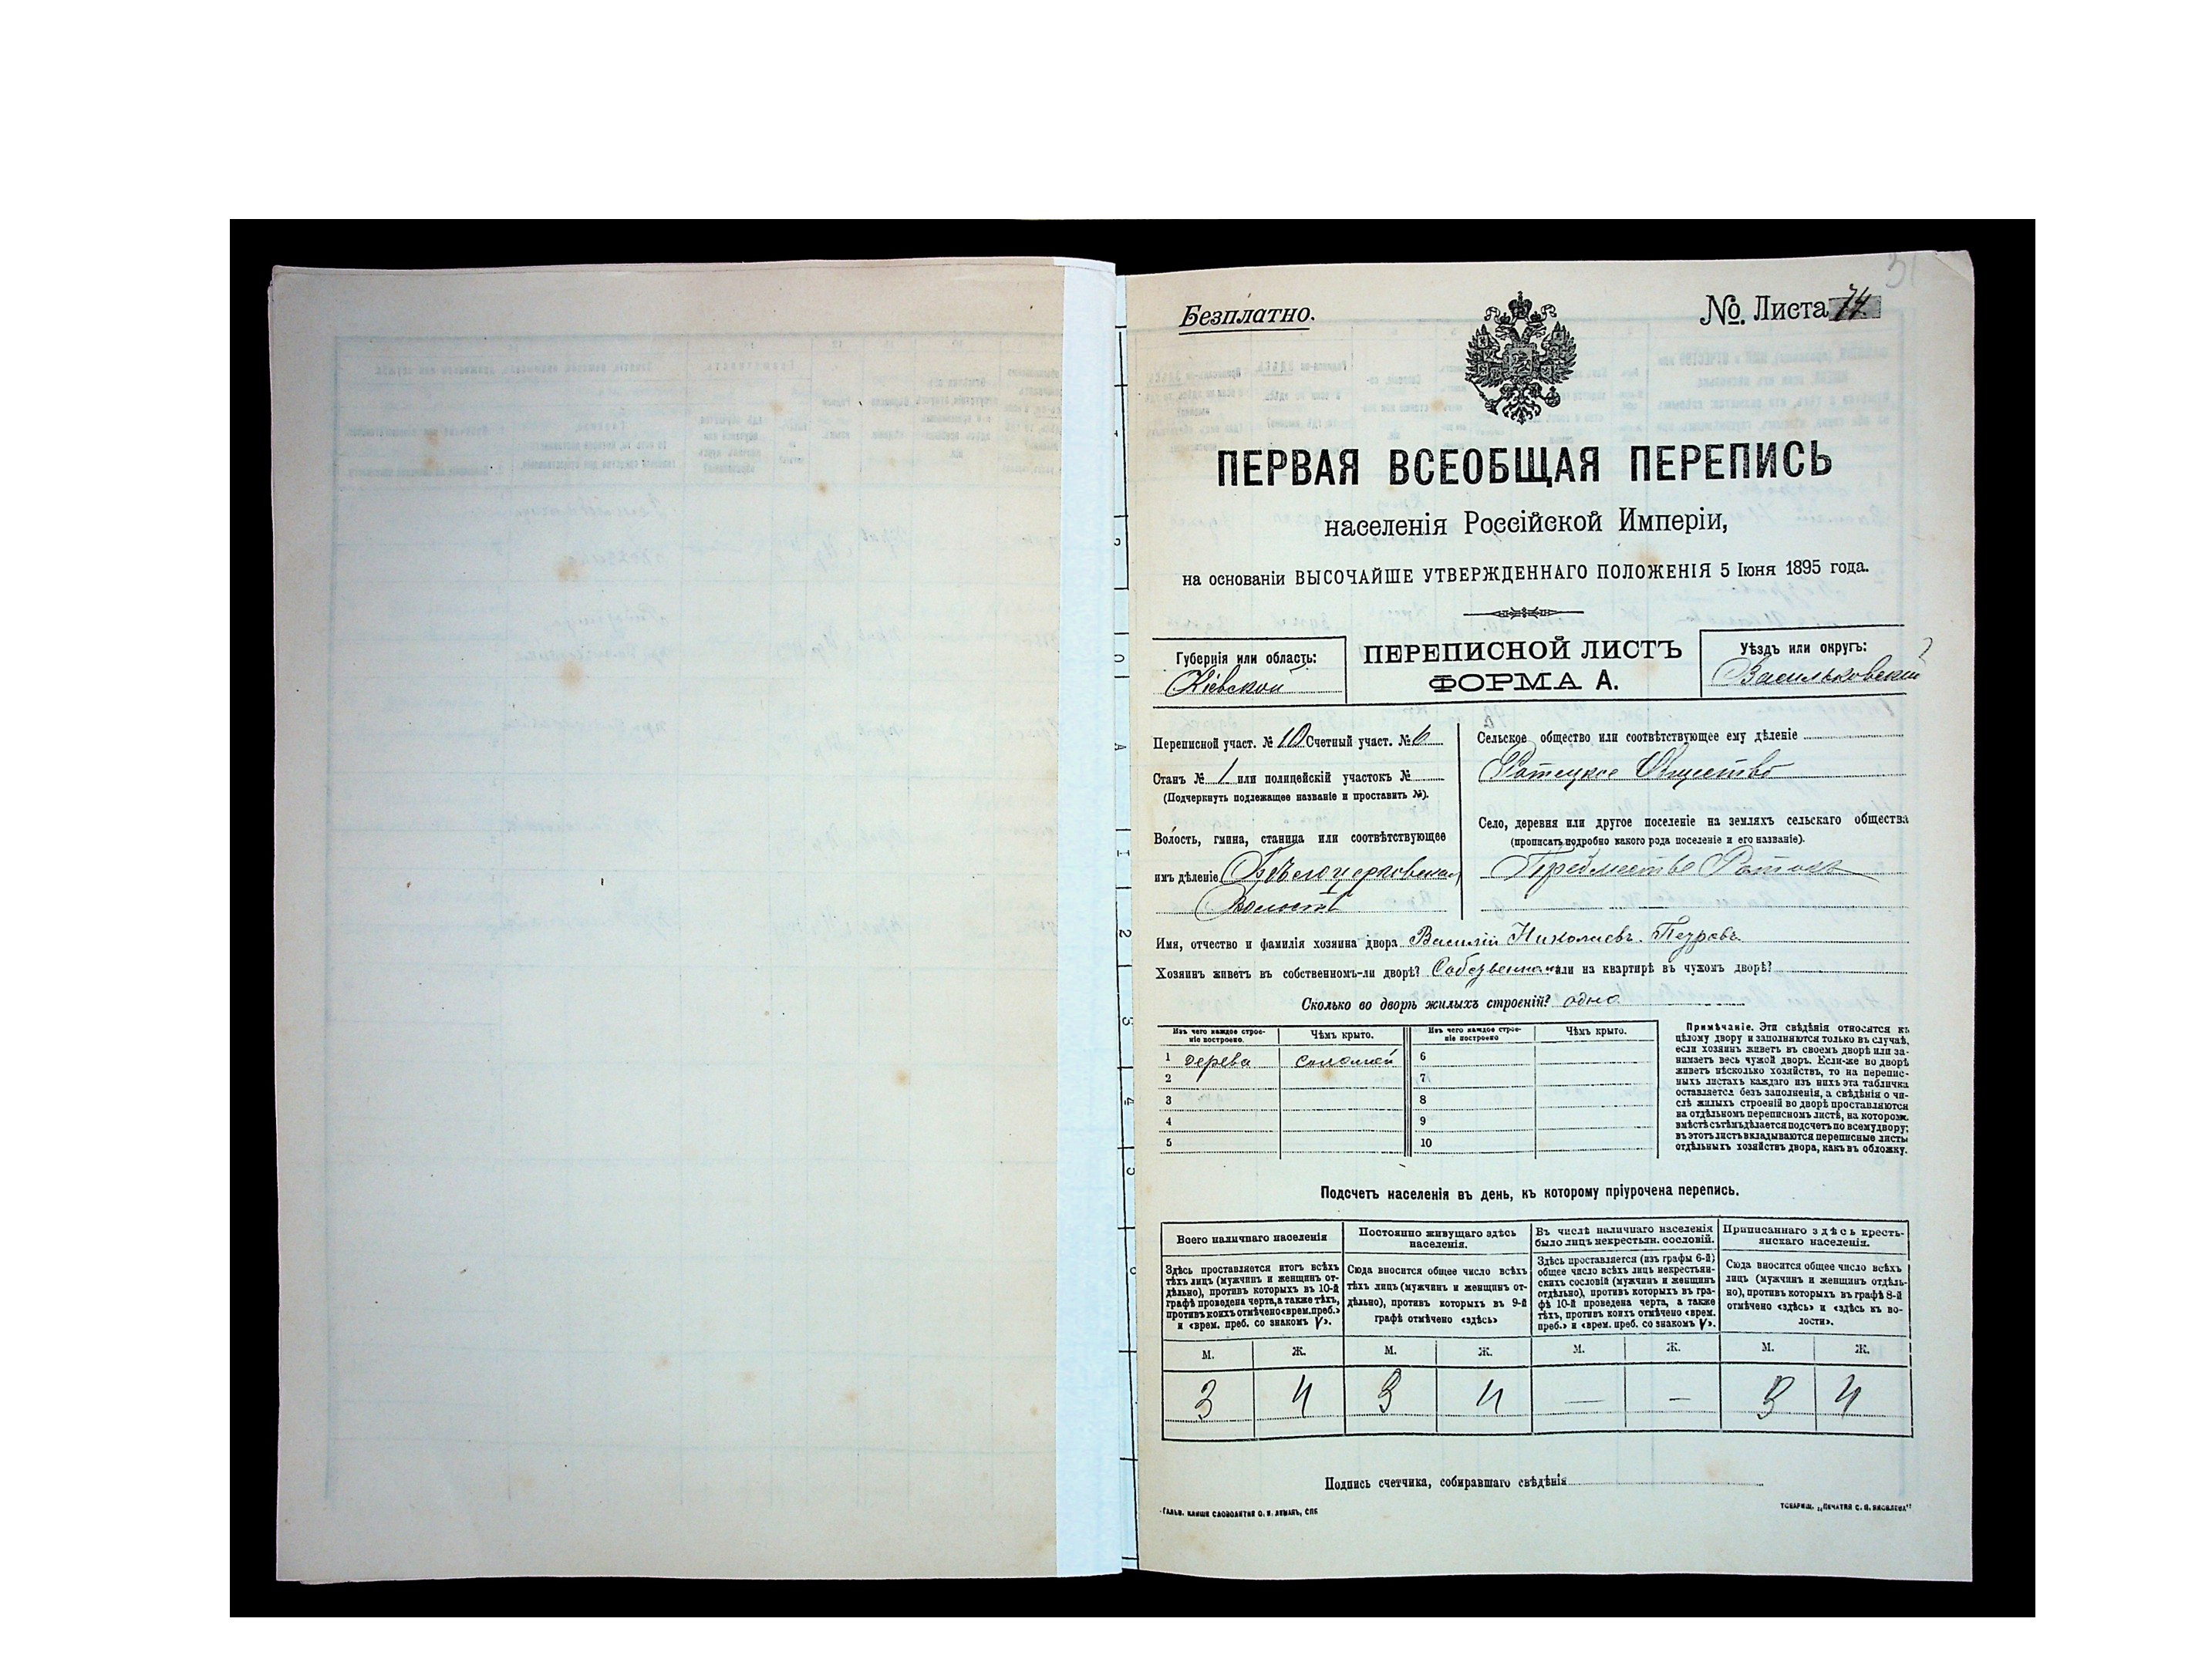 31
Безплатно.
№. Листа 74
ПЕРВАЯ ВСЕОБЩАЯ ПЕРЕПИСЬ
населенія Россійской Имперіи,
на основаніи ВЫСОЧАЙШЕ УТВЕРЖДЕННАГО ПОЛОЖЕНІЯ 5 Іюня 1895 года.
Губернія или область:
Кіевской
ПЕРЕПИСНОЙ ЛИСТЪ
ФОРМА А.
Уѣздъ или округъ:
Васильковскій
Переписной участ. № 10 Счетный участ. № 6
Станъ № 1 или полицейскій участокъ №
(Подчеркнуть подлежащее названіе и проставить №).
Волость, гмина, станица или соотвѣтствующее
имъ дѣленіе Бѣлоцерковская
Волость
Сельское общество или соотвѣтствующее ему дѣленіе
Ротецкое Общество
Село, деревня или другое поселеніе на земляхъ сельскаго общества
(прописать подробно какого рода поселеніе и его названіе).
Предместье Роток
Имя, отчество и фамилія хозяина двора Василій Николаевъ
Хозяинъ живетъ въ собственномъ-ли дворѣ? или на квартирѣ въ чужомъ дворѣ?
Сколько во дворѣ жилыхъ строеній? одно
Изъ чего каждое строе-
ніе построено.
Чѣмъ крыто.
Изъ чего каждое строе-
ніе построено
Чѣмъ крыто.
1 дерева соломой 6
2 7
3 8
4 9
5 10
Примѣчаніе. Эти свѣдѣнія относятся къ
цѣлому двору и заполняются только въ случаѣ,
если хозяинъ живетъ въ своемъ дворѣ или за-
нимаетъ весь чужой дворъ. Если-же во дворѣ
живетъ нѣсколько хозяйствъ, то на перепис-
ныхъ листахъ каждаго изъ нихъ эта табличка
оставляется безъ заполненія, а свѣдѣнія о чи-
слѣ жилыхъ строеній во дворѣ проставляются
на отдѣльномъ переписномъ листѣ, на которомъ
вмѣстѣ съ тѣмъ дѣлается подсчетъ по всему двору;
въ этотъ листъ вкладываются переписные листы
отдѣльныхъ хозяйствъ двора, какъ въ обложку.
Подсчетъ населенія въ день, къ которому пріурочена перепись.
Всего наличнаго населенія
Здѣсь проставляется итогъ всѣхъ
тѣхъ лицъ (мужчинъ и женщинъ от-
дѣльно), противъ которыхъ въ 10-й
графѣ проведена черта, а также тѣхъ,
противъ коихъ отмѣчено «врем. преб.»
и «врем. преб. со знакомъ V».
Постоянно живущаго здѣсь
населенія.
Сюда вносится общее число всѣхъ
тѣхъ лицъ (мужчинъ и женщинъ от-
дѣльно), противъ которыхъ въ 9-й
графѣ отмѣчено «здѣсь»
Въ числѣ наличнаго населенія
было лицъ некрестьян. сословій.
Здѣсь проставляется (изъ графы 6-й)
общее число всѣхъ лицъ некрестьян-
скихъ сословій (мужчинъ и женщинъ
отдѣльно), противъ которыхъ въ гра-
фѣ 10-й проведена черта, а также
тѣхъ, противъ коихъ отмѣчено «врем.
преб.» и «врем. преб. со знакомъ V».
Приписаннаго здѣсь кресть-
янскаго населенія.
Сюда вносится общее число всѣхъ
лицъ (мужчинъ и женщинъ отдѣль-
но), противъ которыхъ въ графѣ 8-й
отмѣчено «здѣсь» и «здѣсь въ во-
лости».
М. Ж. М. Ж. М. Ж. М. Ж.
3 4 3 4 — — 3 4
Подпись счетчика, собиравшаго свѣдѣнія
ГАЛЬВ. КЛИШЕ СЛОВОЛИТНИ О. И. ЛЕМАНЪ, СПБ
ТОВАРИЩ. „ПЕЧАТНЯ С. П. ЯКОВЛЕВА"